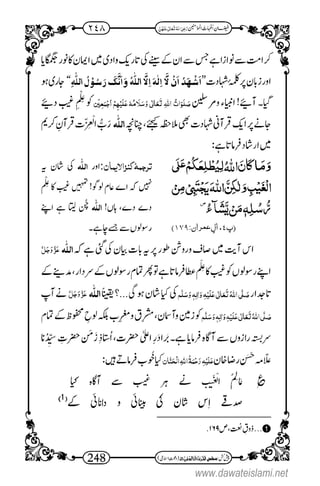 ۲٤۸
کرامت سے نوازا ہے جس سے ان کے سینے کی تاریک وادی میں ایمان کا نور جگمگا یا
اور زبان پر کلمۂ شہادت ”اَشْهَدُ اَنْ لَّا اِلٰهَ اِلَّا اللّٰهُ وَاَنَّكَ رَسُوْلُ اللّٰهِ“ جاری ہو
گیا۔ آئیے! انبیا و مرسلین صَلَوَاتُ اللّٰهِ تَعَالٰى وَسَلَامُهٗ عَلَيْهِمْ اَجْمَعِيْن کو علمِ غیب دئیے
جانے پر ایک قرآنی شہادت بھی ملاحظہ کیجئے، چنانچہ اللّٰه رَبُّ الْعِزَّت قرآنِ کریم
میں ارشاد فرماتا ہے:
وَمَا كَانَ اللّٰهُ لِیُطْلِعَكُمْ عَلَى
الْغَیْبِ وَلٰكِنَّ اللّٰهَ یَجْتَبِیْ مِنْ
رُّسُلِهٖ مَنْ یَّشَآءُ
(پ٤، اٰل عمران: ۱۷۹)
ترجمۂ کنزالایمان: اور اللّٰه کی شان یہ
نہیں کہ اے عام لوگو! تمہیں غیب کا علم
دے دے، ہاں! اللّٰه چُن لیتا ہے اپنے
رسولوں سے جسے چاہے۔
اس آیت میں صاف روشن طور پر یہ بات بیان کی گئی ہے کہ اللّٰه عَزَّوَجَلَّ
اپنے رسولوں کو غیب کا علم عطا فرماتا ہے پھر تو تمام رسولوں کے سردار، مدینے کے
تاجدار صَلَّی اللّٰهُ تَعَالٰى عَلَيْهِ وَاٰلِهٖ وَسَلَّم کی کیا ہی شان ہو گی...؟ یقیناً اللّٰه عَزَّوَجَلَّ نے آپ
صَلَّی اللّٰهُ تَعَالٰى عَلَيْهِ وَاٰلِهٖ وَسَلَّم کو زمین و آسمان، مشرق و مغرب بلکہ لوحِ محفوظ کے تمام
سربستہ رازوں سے آگاہ فرمایا ہے۔ برادرِ اعلیٰ حضرت، اُستاذِ زَمَن حضرتِ سیِّدُنا
علّامہ حسن رضا خان عَلَيْهِ رَحْمَةُ الْحَنَّان کیا خُوب فرماتے ہیں:
عَالِمُ الْغَیب نے ہر غیب سے آگاہ کیا
صدقے اِس شان کی بینائی و دانائی کے (۱)
۱...ذوقِ نعت، ص۱۶۹.
248
www.dawateislami.net